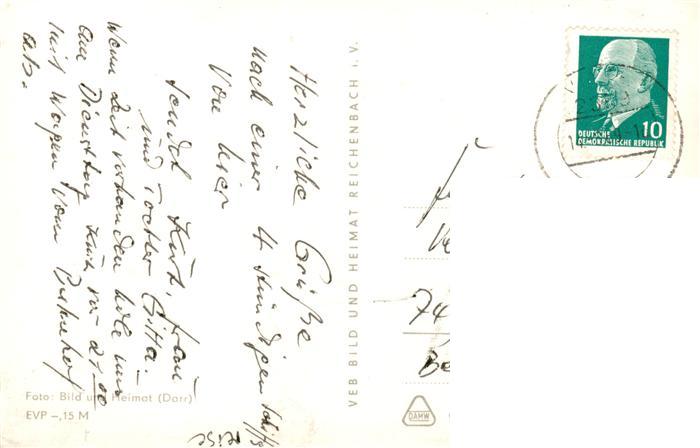 Herzliche Grüße
nach einer 4 stündigen Schiffs
reise
von hier
sendet Kurt, Frau
und Tochter Gitta.
Wenn Zeit vorhanden hole uns
am Dienstag kurz vor 21.00
mit Wagen vom Bahnhof
ab.
Foto: Bild und Heimat (Darr)
EVP –,15 M
VEB BILD UND HEIMAT REICHENBACH i. V.
10
DEUTSCHE
DEMOKRATISCHE REPUBLIK
74
Be
DAMW